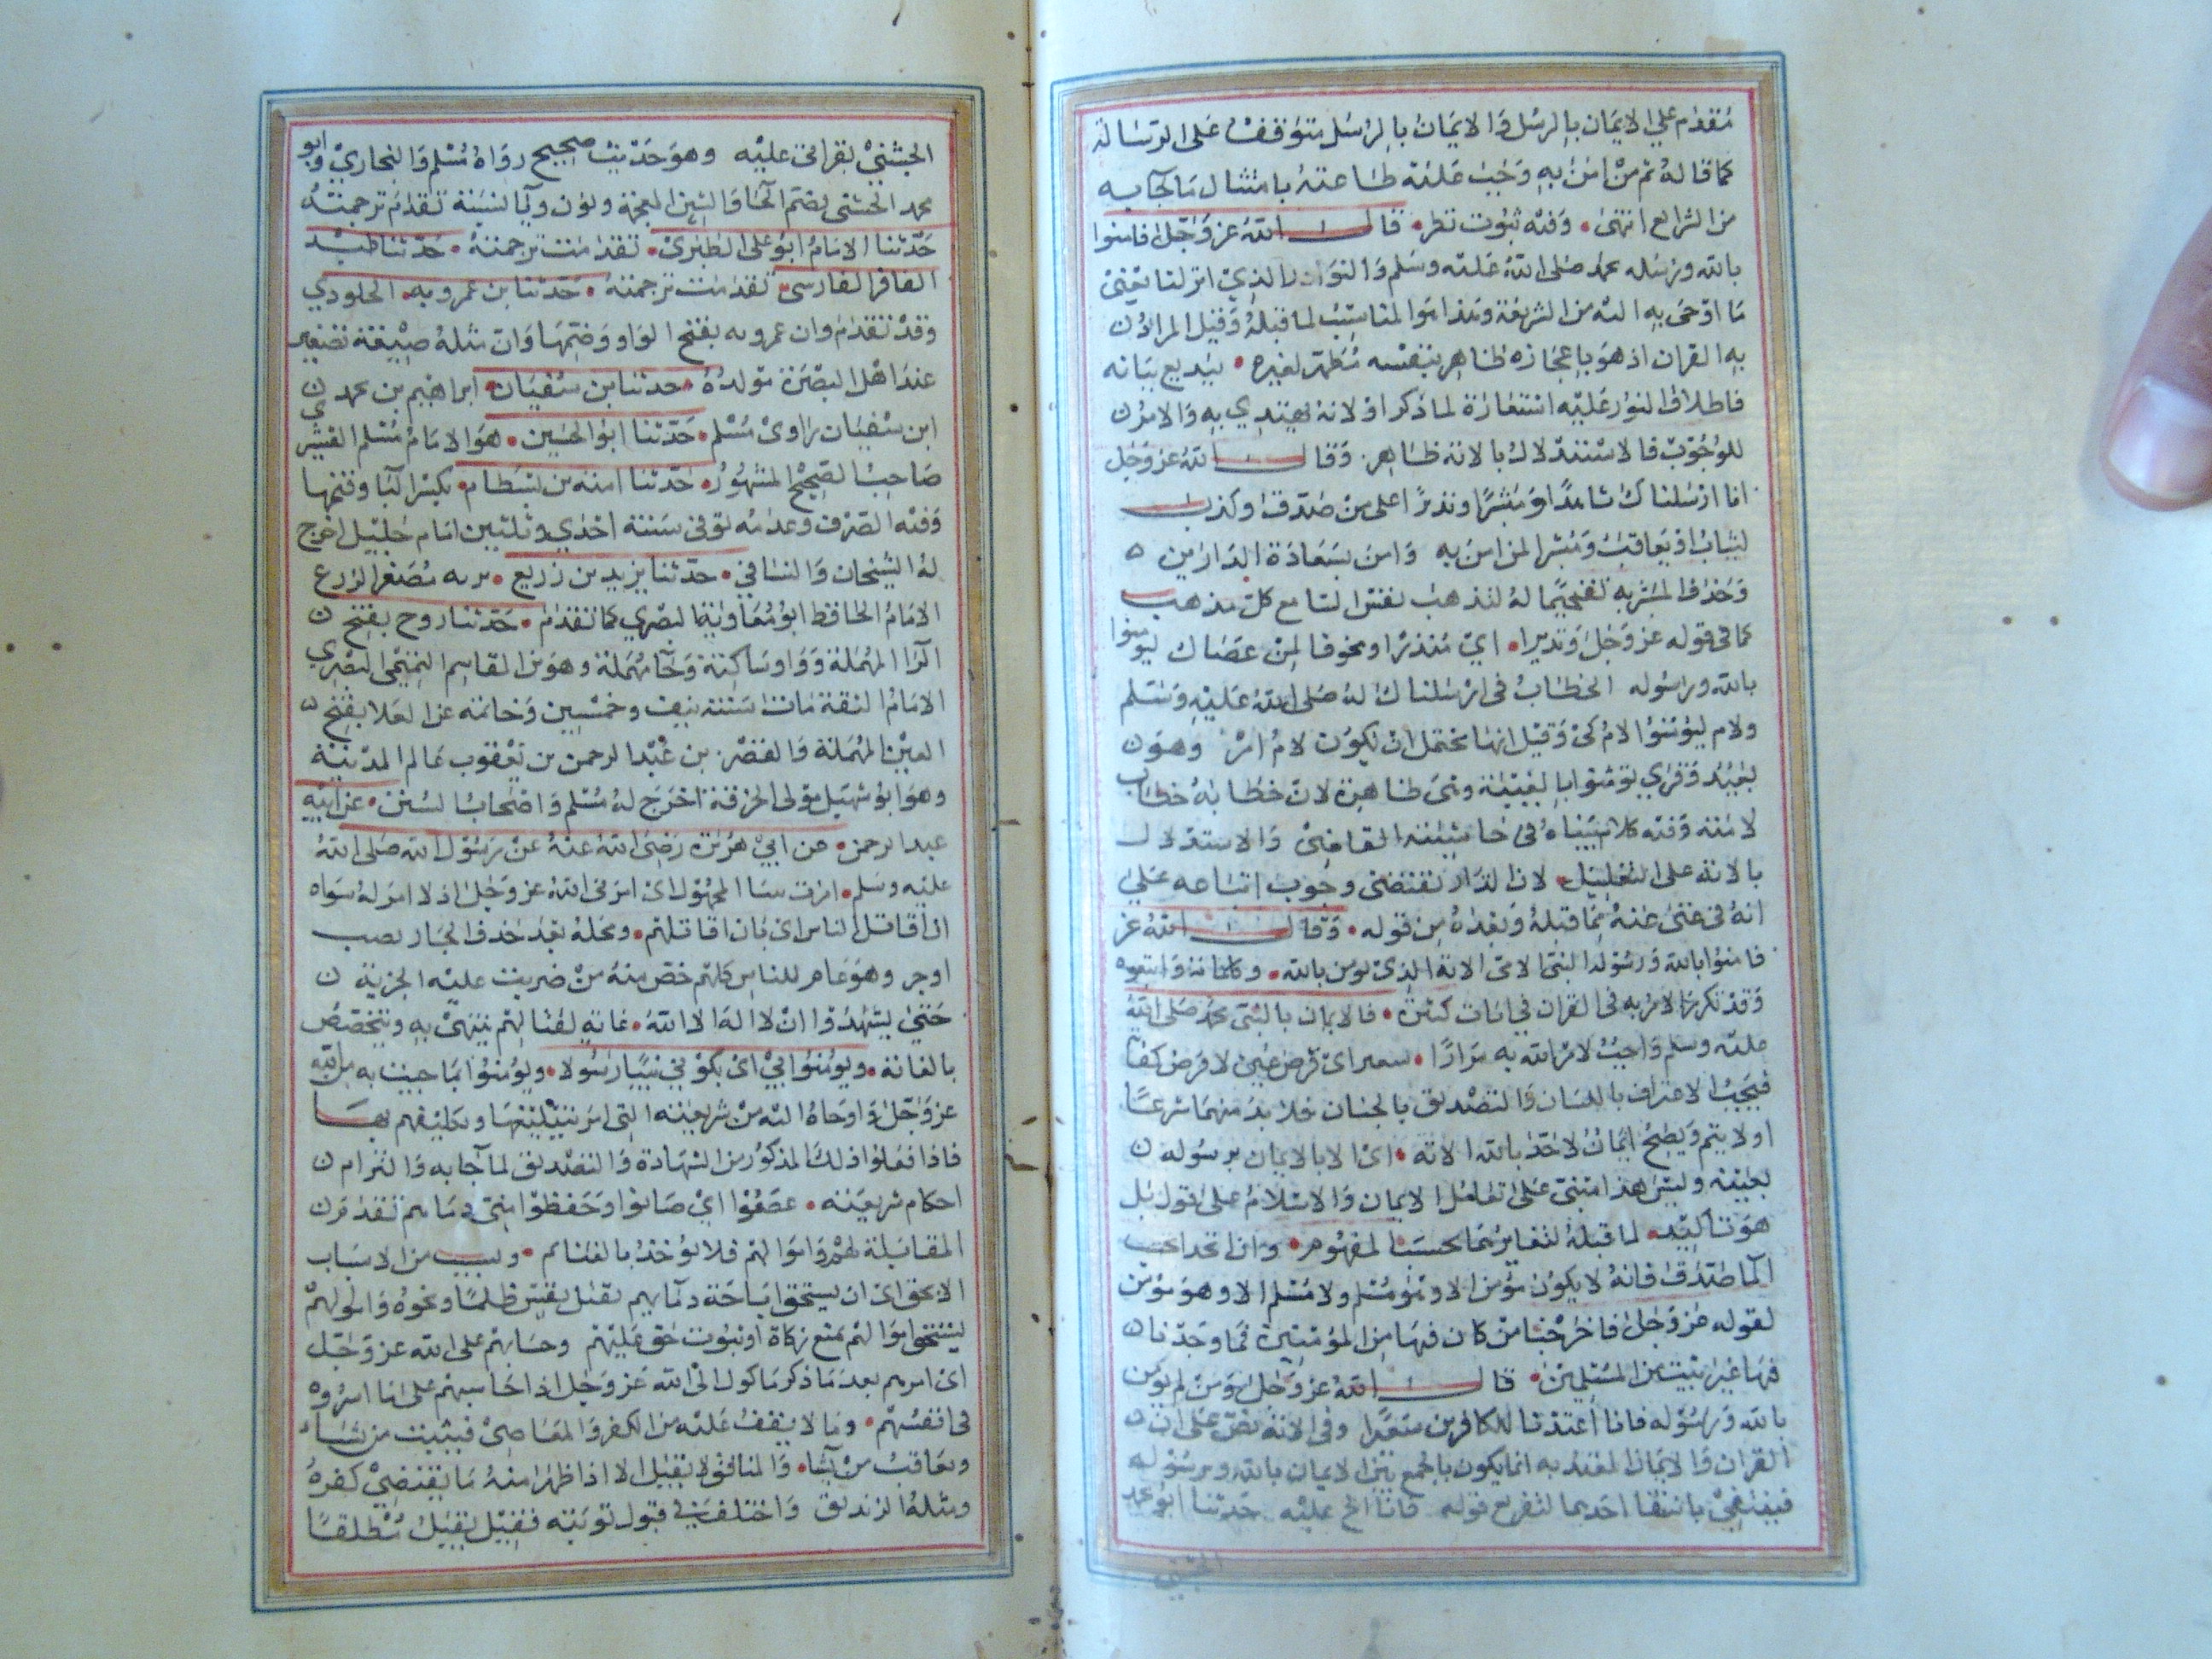 متقدم علي الايمان بالرسل والايمان بالرسل متوقف على الرسالة
كما قاله ثم من امن به وجب عليه طاعته بامتثال ما جآبه
من الشرايع انتهى وفيه ثبوت نظر قال الله عز وجل فامنوا
بالله ورسله محمد صلى الله عليه وسلم والنور الذي انزلنا يعني
ما اوحى به اليه من الشريعة وهذا هو المناسب لما قبله وقيل المراد
به القران اذ هو باعجازه ظاهر بنفسه مظهر لغيره ببديع بيانه
فاطلاق النور عليه استعارة لما ذكر او لانه يهتدي به والامر
للوجوب فالاستدلال بالاية ظاهر وقال الله عز وجل
انا ارسلناك شاهدا ومبشرا ونذيرا على من صدق او كذب
ليثاب او يعاقب ومبشرا لمن امن به وامن بسعادة الدارين
وحذف المبشر به تفخيما له لتذهب نفس السامع كل مذهب
كما في قوله عز وجل ونذيرا اي منذرا ومخوفا لمن عصاك ليومنوا
بالله ورسوله الخطاب في ارسلناك له صلى الله عليه وسلم
ولام ليؤمنوا لام كي وقيل انها تحتمل ان تكون لام امر وهو
بعيد وقري يؤمنوا بالغيبة وهي ظاهرة لان خطابه خطاب
لامته وفيه كلام بيناه في حاشية القاضي والاستدلال
بالاية على التعليل لان الدار تقتضي وجوب اتباعه علي
انه في غنى عنه بما قبله وبعده من قوله وقال الله عز
فامنوا بالله ورسوله النبي الامي الاية الذي يومن بالله وكلماته واتبعوه
وقد تكرر الامر به في القران في ايات كثيرة فالايمان بالنبي محمد صلى الله
عليه وسلم واجب لامر الله به مرارا اي فرض عين لا فرض كفا
فيجب الاعتراف باللسان والتصديق بالجنان فلا بد منهما شرعا
او لا يتم ويصح ايمان لاحد بالله الا به اي الا بالايمان برسوله
وليس هذا مبني على تفاضل الايمان والاسلام على قول بل
هو تأكيد لما قبله لتغايرهما بحسب المفهوم وان اتحدا بحسب
الماصدق فانه لا يكون مؤمن الا وهو مسلم ولا مسلم الا وهو مؤمن
لقوله عز وجل فاخرجنا من كان فيها من المؤمنين فما وجدنا
فيها غير بيت من المسلمين قال الله عز وجل ومن لم يومن
بالله ورسوله فانا اعتدنا للكافرين سعيرا وفي الاية نص على ان
القران والايمان المعتد به انما يكون بالجمع بين الايمان بالله ورسوله
فينتفي بانتفا احدهما لتفريع قوله فانا الخ عليه حدثنا ابو محمد
الخشني
الخشني بقراتي عليه وهو حديث صحيح رواه مسلم والبخاري وابو
محمد الخشني بضم الخا والشين المعجمة ونون ويا النسبة تقدم ترجمته
حدثنا الامام ابو على الطبري تقدمت ترجمته حدثنا عبد
الغافر الفارسي تقدمت ترجمته حدثنا بن عمرويه الجلودي
وقد تقدم وان عمرويه بفتح الواو وضمها وان مثله صيغة تصغير
عند اهل البصرة مولده حدثنا بن سفيان ابراهيم بن محمد
ابن سفيان راوي مسلم حدثنا ابو الحسين هو الامام مسلم القشيري
صاحب الصحيح المشهور حدثنا امية بن بسطام بكسر البا وفتحها
وفيه الصرف وعدمه توفي سنة احدي وثلثين امام جليل اخرج
له الشيخان والنسائي حدثنا يزيد بن زريع بزنه مصغر الزرع
الامام الحافظ ابو معاوية البصري كما تقدم حدثنا روح بفتح
الرا المهملة وواو ساكنة وحا مهملة وهو بن القاسم التميمي البصري
الامام الثقة مات سنة نيف وخمسين وماية عن العلا بفتح
العين المهملة والقصر بن عبد الرحمن بن يعقوب عالم المدينة
وهو ابو شبل مولى الحرقة اخرج له مسلم واصحاب السنن عن ابيه
عبد الرحمن عن ابي هريرة رضي الله عنه عن رسول الله صلى الله
عليه وسلم امرت ببنا المجهول اي امرني الله عز وجل اذ لا امر له سواه
ان اقاتل الناس اي بان اقاتلهم ومحله بعد حذف الجار نصب
او جر وهو عام للناس كلهم خص منه من ضربت عليه الجزية
حتى يشهدوا ان لا اله الا الله غاية لقتالهم ينتهي به ويتخصص
بالغاية ويؤمنوا بي اي بكوني نبيا رسولا ويؤمنوا بما جيت به من الله
عز وجل واوحاه اليه من شريعته التي امر بتبليغها وتكليفهم بها
فاذا فعلوا ذلك المذكور من الشهادة والتصديق لما جآ به والتزام
احكام شريعته عصموا اي صانوا وحفظوا مني دماهم تقدم من
المقاتلة لهم واموالهم فلا يؤخذ بالغنايم وليس من الاسباب
الا بحق اي ان يستحق اباحة دمآيهم بقتل نفس ظلما ونحوه واموالهم
ليستحق اموالهم بمنع زكاة او ثبوت حق عليهم وحسابهم على الله عز وجل
اي امرهم بعد ما ذكر ماكول الى الله عز وجل اذا حاسبهم على ما اسروه
في انفسهم وما لا يقف عليه من الكفر والمعاصي فيثيب من شاء
ويعاقب من يشا والمنافق لا تقبل الا اذا ظهر منه ما يقتضي كفره
ومثله الزنديق واختلف في قبول توبته فقيل تقبل مطلقا